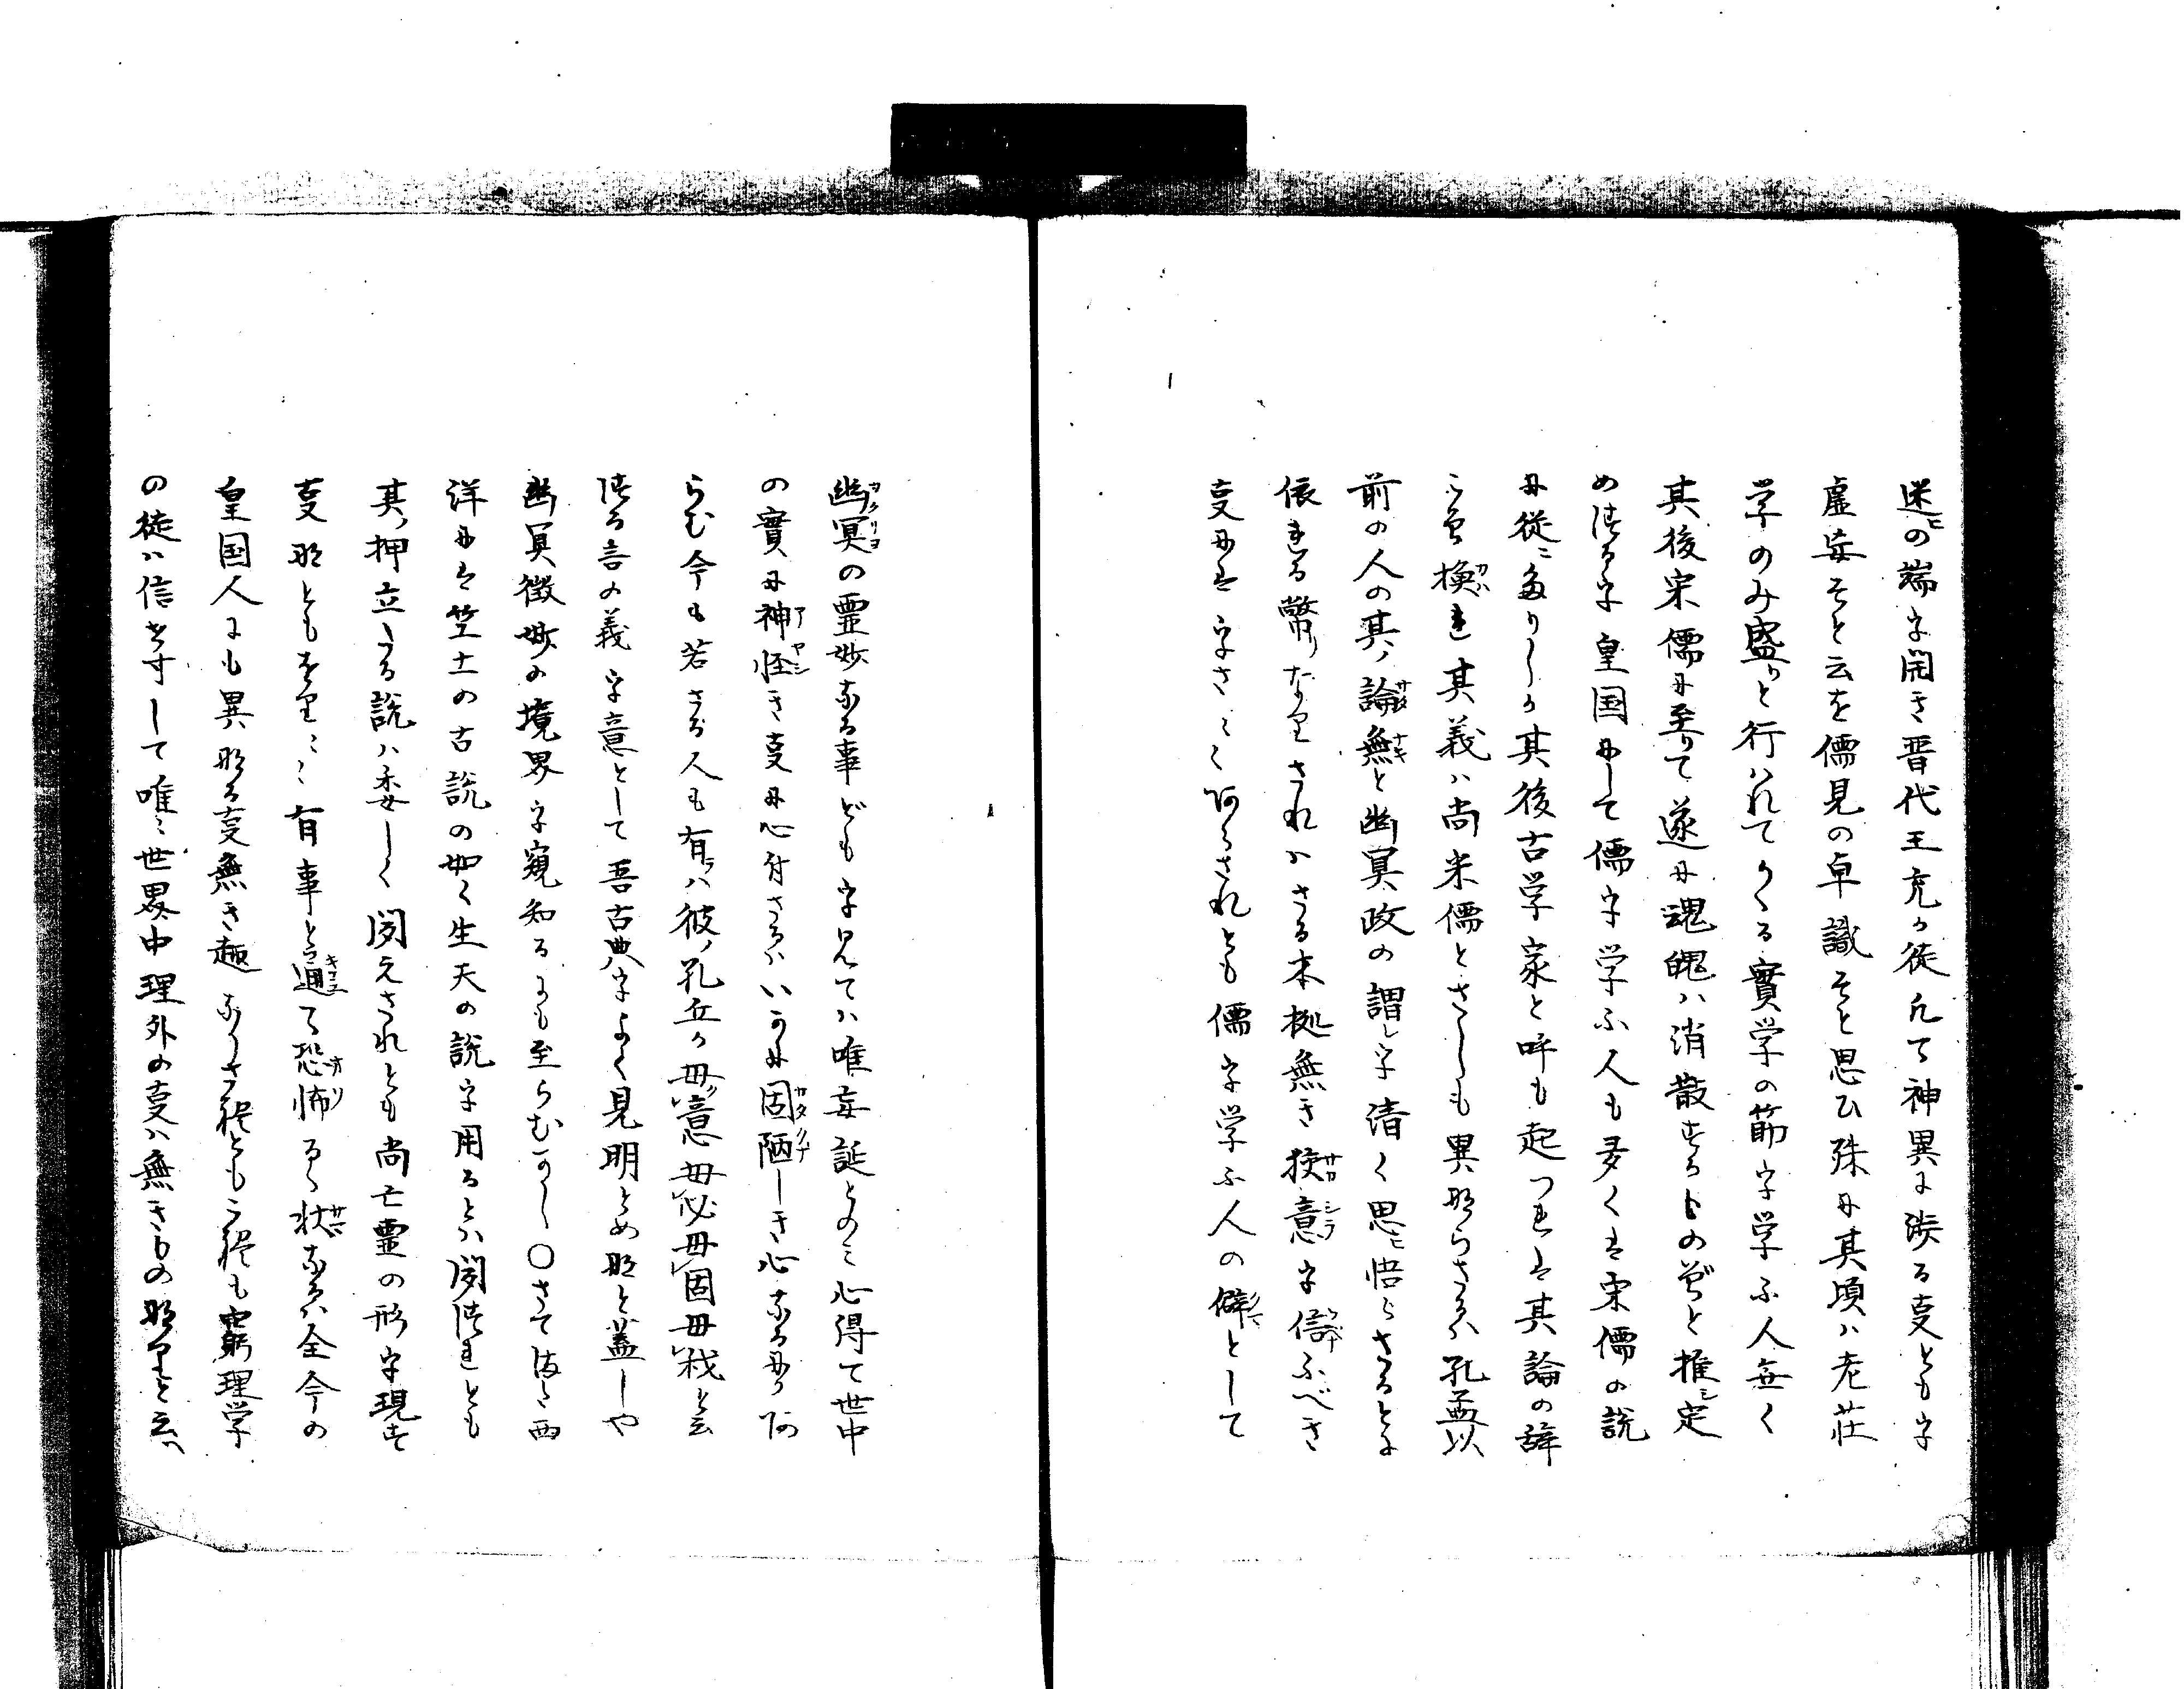 迷ヒの端字開き晋代王充か徒凡て神異に渉る叓とも字
虚妄そと云を儒見の卓識そと思ひ殊に其頃ハ老荘
学のみ盛りと行ハれてかゝる實学の筋字学ふ人無く
其後宋儒に至りて遂に魂魄ハ消散するものぞと推シ定
めける字皇国にして儒字学ふ人も多くは宋儒の説
に従ヒありしか其後古学家と呼も起つれは其論の辞
こそ換れ其義ハ尚宋儒とさしも異ならさるハ孔孟以
前の人の其ノ論無と幽冥政の謂レ字清く思ヒ悟らさるとに
依れる幣りなりされハさる本拠無き狡意字信ふべき
叓には字さ〳〵阿らされとも儒字学ふ人の僻として
幽冥の霊妙なる事ども字見てハ唯妄誕とのミ心得て世中
の實に神怪き叓に心付さるハいかに固陋しき心なるにか阿
らむ今も若さる人も有ラハ彼ノ孔丘か毋意毋必毋固毋我と云
ける言の義字意として吾古典字よく見明らめなと蓋しや
幽冥徴妙の境界字窺知るにも至らむかし〇さて彼ノ西
洋には竺土の古説の如く生天の説字用るとハ聞けれとも
其ノ押立たる説ハ委しく聞えされとも尚亡霊の形字現す
叓なともをり〳〵有事と通て恐怖るゝ状なるハ全今の
皇国人にも異なる叓無き趣なりされともこれも窮理学
の徒ハ信せすして唯ゝ世界中理外の叓ハ無きものなりと云ヘ